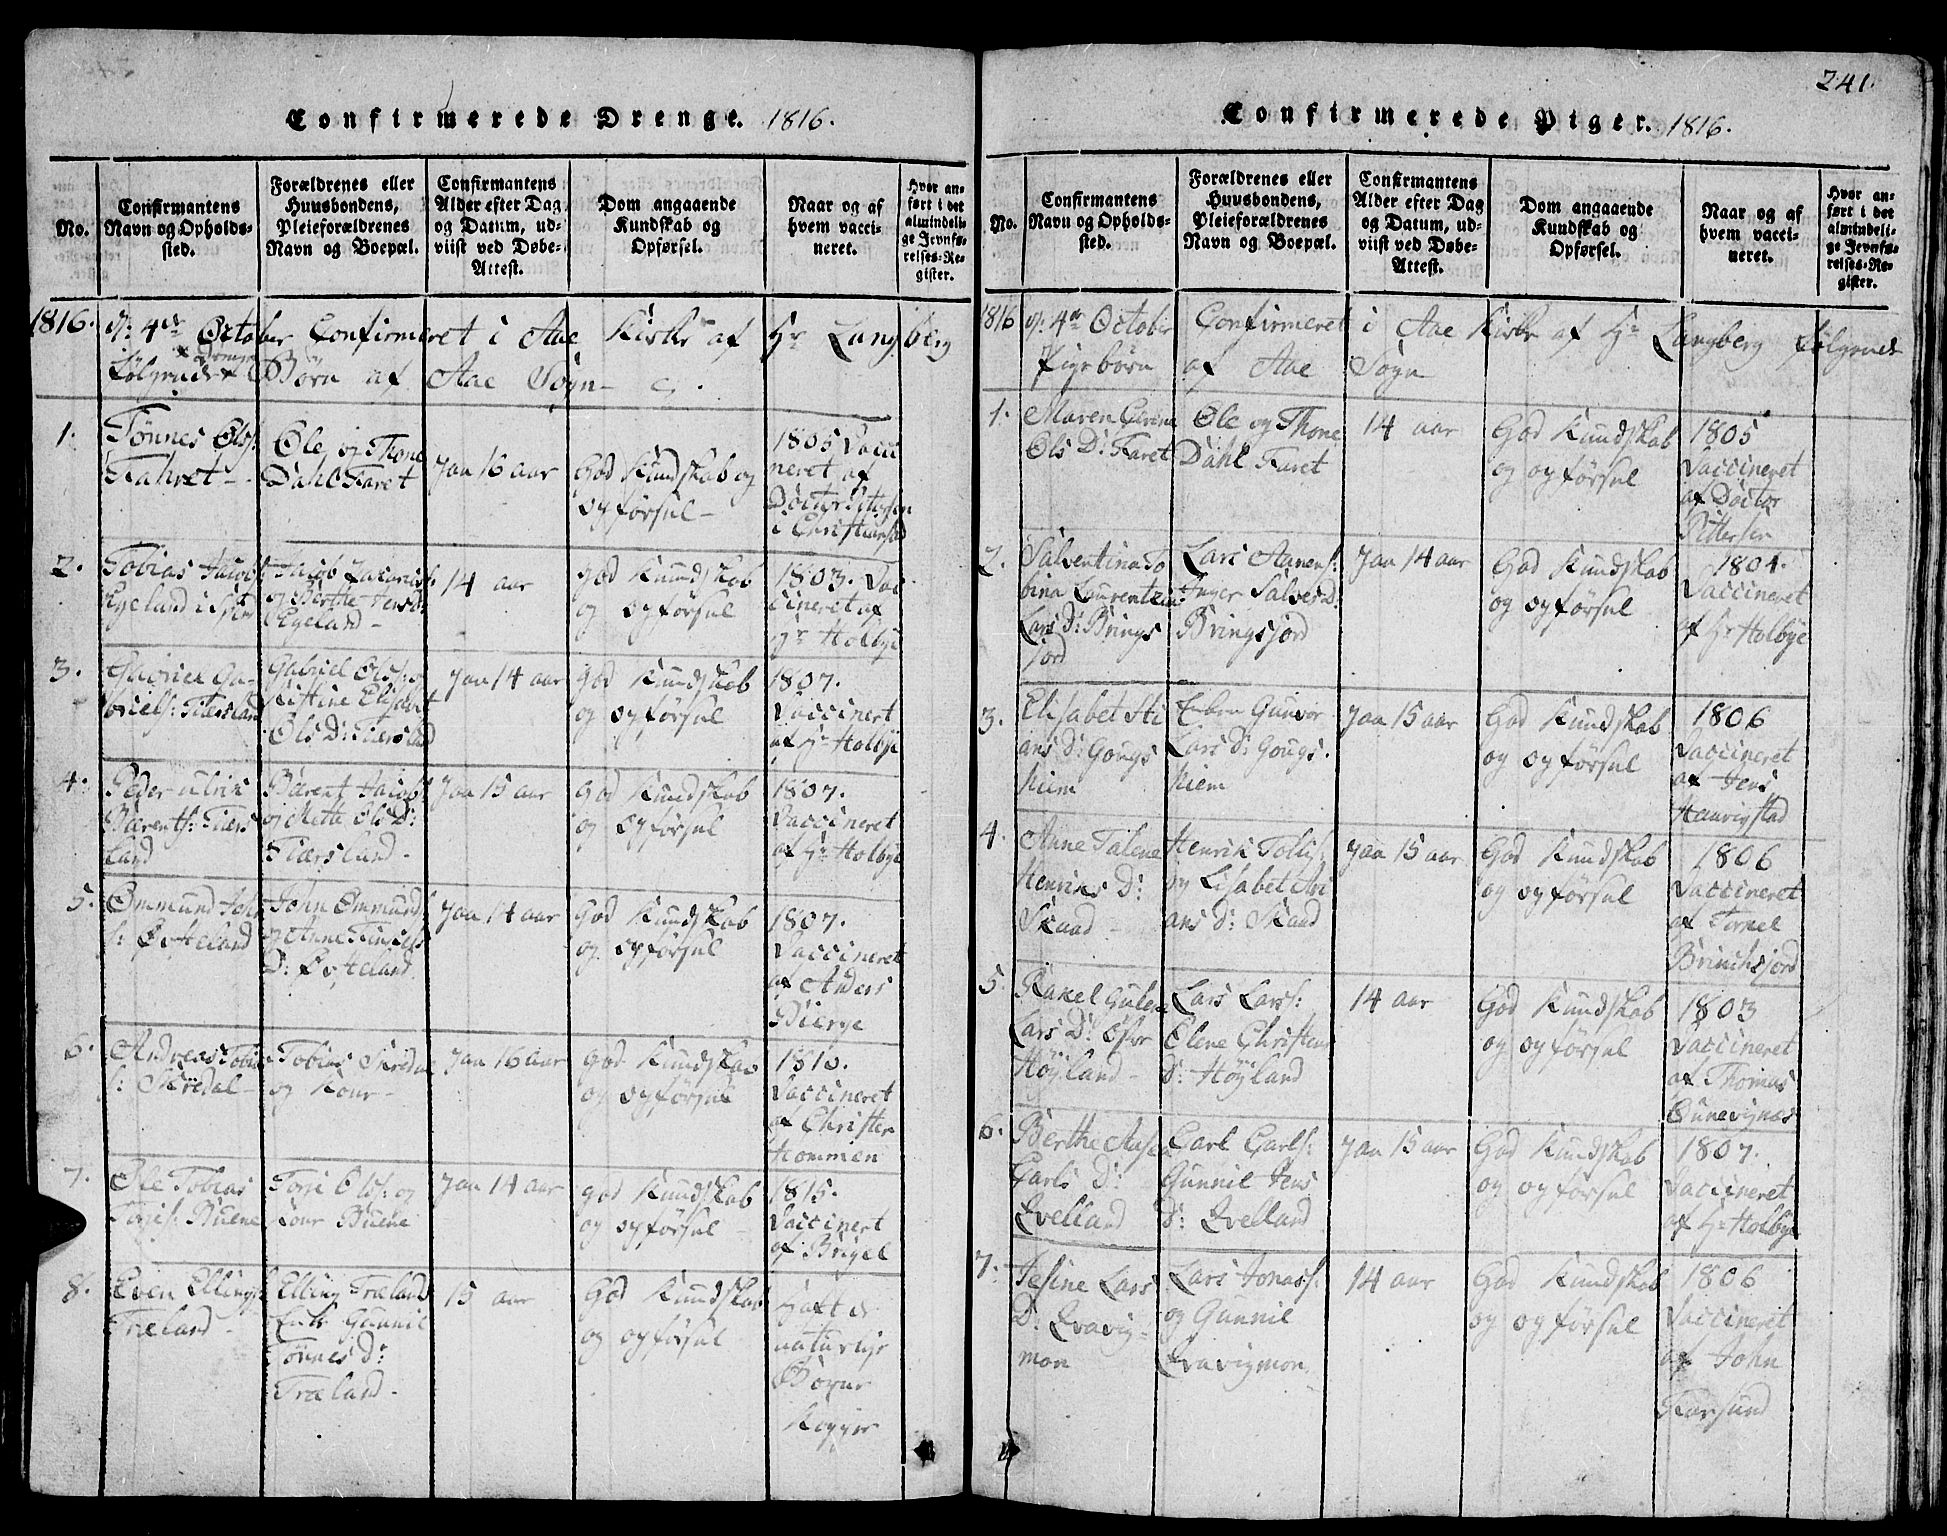 Confirmerede Drenge. 1816.
No.
Confirmantens
Navn og Opholds-
sted.
Forældrenes eller
Huusbondens,
Pleieforældrenes
Navn og Boepæl.
Confirmantens
Alder efter Dag
og Datum, ud-
viist ved Døbe-
Attest.
Dom angaaende
Kundskab og
Opførsel.
Naar og af
hvem vacci-
neret.
Hvor an-
ført i det
almindeli-
ge Jevnfø-
relses-Re-
gister.
1816. 4de October Confirmeret i Aae Kirke af Hr Langberg
følgende Drenge Børn af Aae Sogn
1.
Tønnes Ols:
Fahret
Ole og Thone
Dahl Faret
Jan 16 aar
God Kundskab og
opførsel
1805 Vacci
neret af
Doctor
i Christiansand
2.
Tobias Jacobs
Egeland i
Jacob
og Berthe
Egeland
14 aar
god Kundskab
og opførsel
1803. Vac
cineret af
Hr Holbye
3.
Ga-
briels: Fiærsland
Gabriel Ols: o
Elisabet
Ols D: Fiærsland
Jaa 14 aar
God Kundskab
og opførsel
1807.
Vaccinert
af Hr Holbye
4.
Peder Ulrik
Bærents: Fiærs
land
Bærent Jacobs
og Mette Ols D:
Fiærsland
Jaa 15 aar
God Kundskab
og opførsel
1807.
Vaccineret
af Hr Holbye
5.
Ommund John
s:
John Ommunds
og Anne
D:
Jaa 14 aar
God Kundskab
og opførsel
1807.
Vaccineret
af Anders
Bierge
6.
Andreas Tobia
s: Skredal
Tobias Skredal
og Kone
Jaa 16 aar
God Kundskab
og opførsel
1810.
Vaccineret
af Christen
Hommen
7.
Ole Tobias
Torjes: Buene
Torje Ols: og
Kone Buene
Jaa 14 aar
god Kundskab
og opførsel
1815.
Vaccinert
af Brigel
8.
Even Ellings:
Træland
Elling Træland
Gunnil
Tønnes D:
Træland
15 aar
God Kundskab
og opførsel
Haft de
naturlige
Børne
Kopper
241.
Confirmerede Piger. 1816.
No.
Confirmantens
Navn og Opholds-
sted.
Forældrenes eller
Huusbondens,
Pleieforældrenes
Navn og Boepæl.
Confirmantens
Alder efter Dag
og Datum, ud-
viist ved Døbe-
Attest.
Dom angaaende
Kundskab og
Opførsel.
Naar og af
hvem vacci-
neret.
Hvor an-
ført i det
almindeli-
ge Jevnfø-
relses-Re-
gister.
1816 4de October Confirmeret i Aae Kirke af Hr Langberg følgende
Pigebørn af Aae Sogn
1.
Maren
Ols D: Faret
Ole og Thone
Dahl Faret
14 aar
God Kundskab
og opførsel
1805
Vaccineret
af Doctor
Pittersen
2.
Salventina To
bina Laurentzia
Lars D: Brings
jord
Lars Aanens:
Inger Salves D:
Bringsjord
Jaa 14 aar
God Kundskab
og opførsel
1804.
Vaccineret
af Hr Holbye
3.
Elisabet Sti
ans D: Gougs
hiem
Enken Gunvor
Lars D: Gougs
hiem
Jaa 15 aar
God Kundskab
og opførsel
1806
Vaccineret
af Jens
4.
Anne Talene
Henriks D:
Skaad
Henrik
og Lisabet
ans D: Skaad
Jaa 15 aar
God Kundskab
og opførsel
1806
Vaccineret
af Tornel
Brinchsjord
5.
Rakel Gulene
Lars D: Øster
Høyland
Lars Lars:
Elene Christens
D: Høyland
14 aar
God Kundskab
og opførsel
1803
Vaccineret
af Thomas
6.
Berthe Aase
Carls D:
Qvelland
Carl Carls:
Gunnil Jens
D: Qvelland
Jaa 15 aar
God Kundskab
og opførsel
1807.
Vaccineret
af Hr Holbye
7.
Jesine Lars
D: Qvavig-
mon
Lars Jonass:
og Gunnil
Qvavigmon
14 aar
God Kundskab
og opførsel
1806
Vaccineret
af John
Farsund